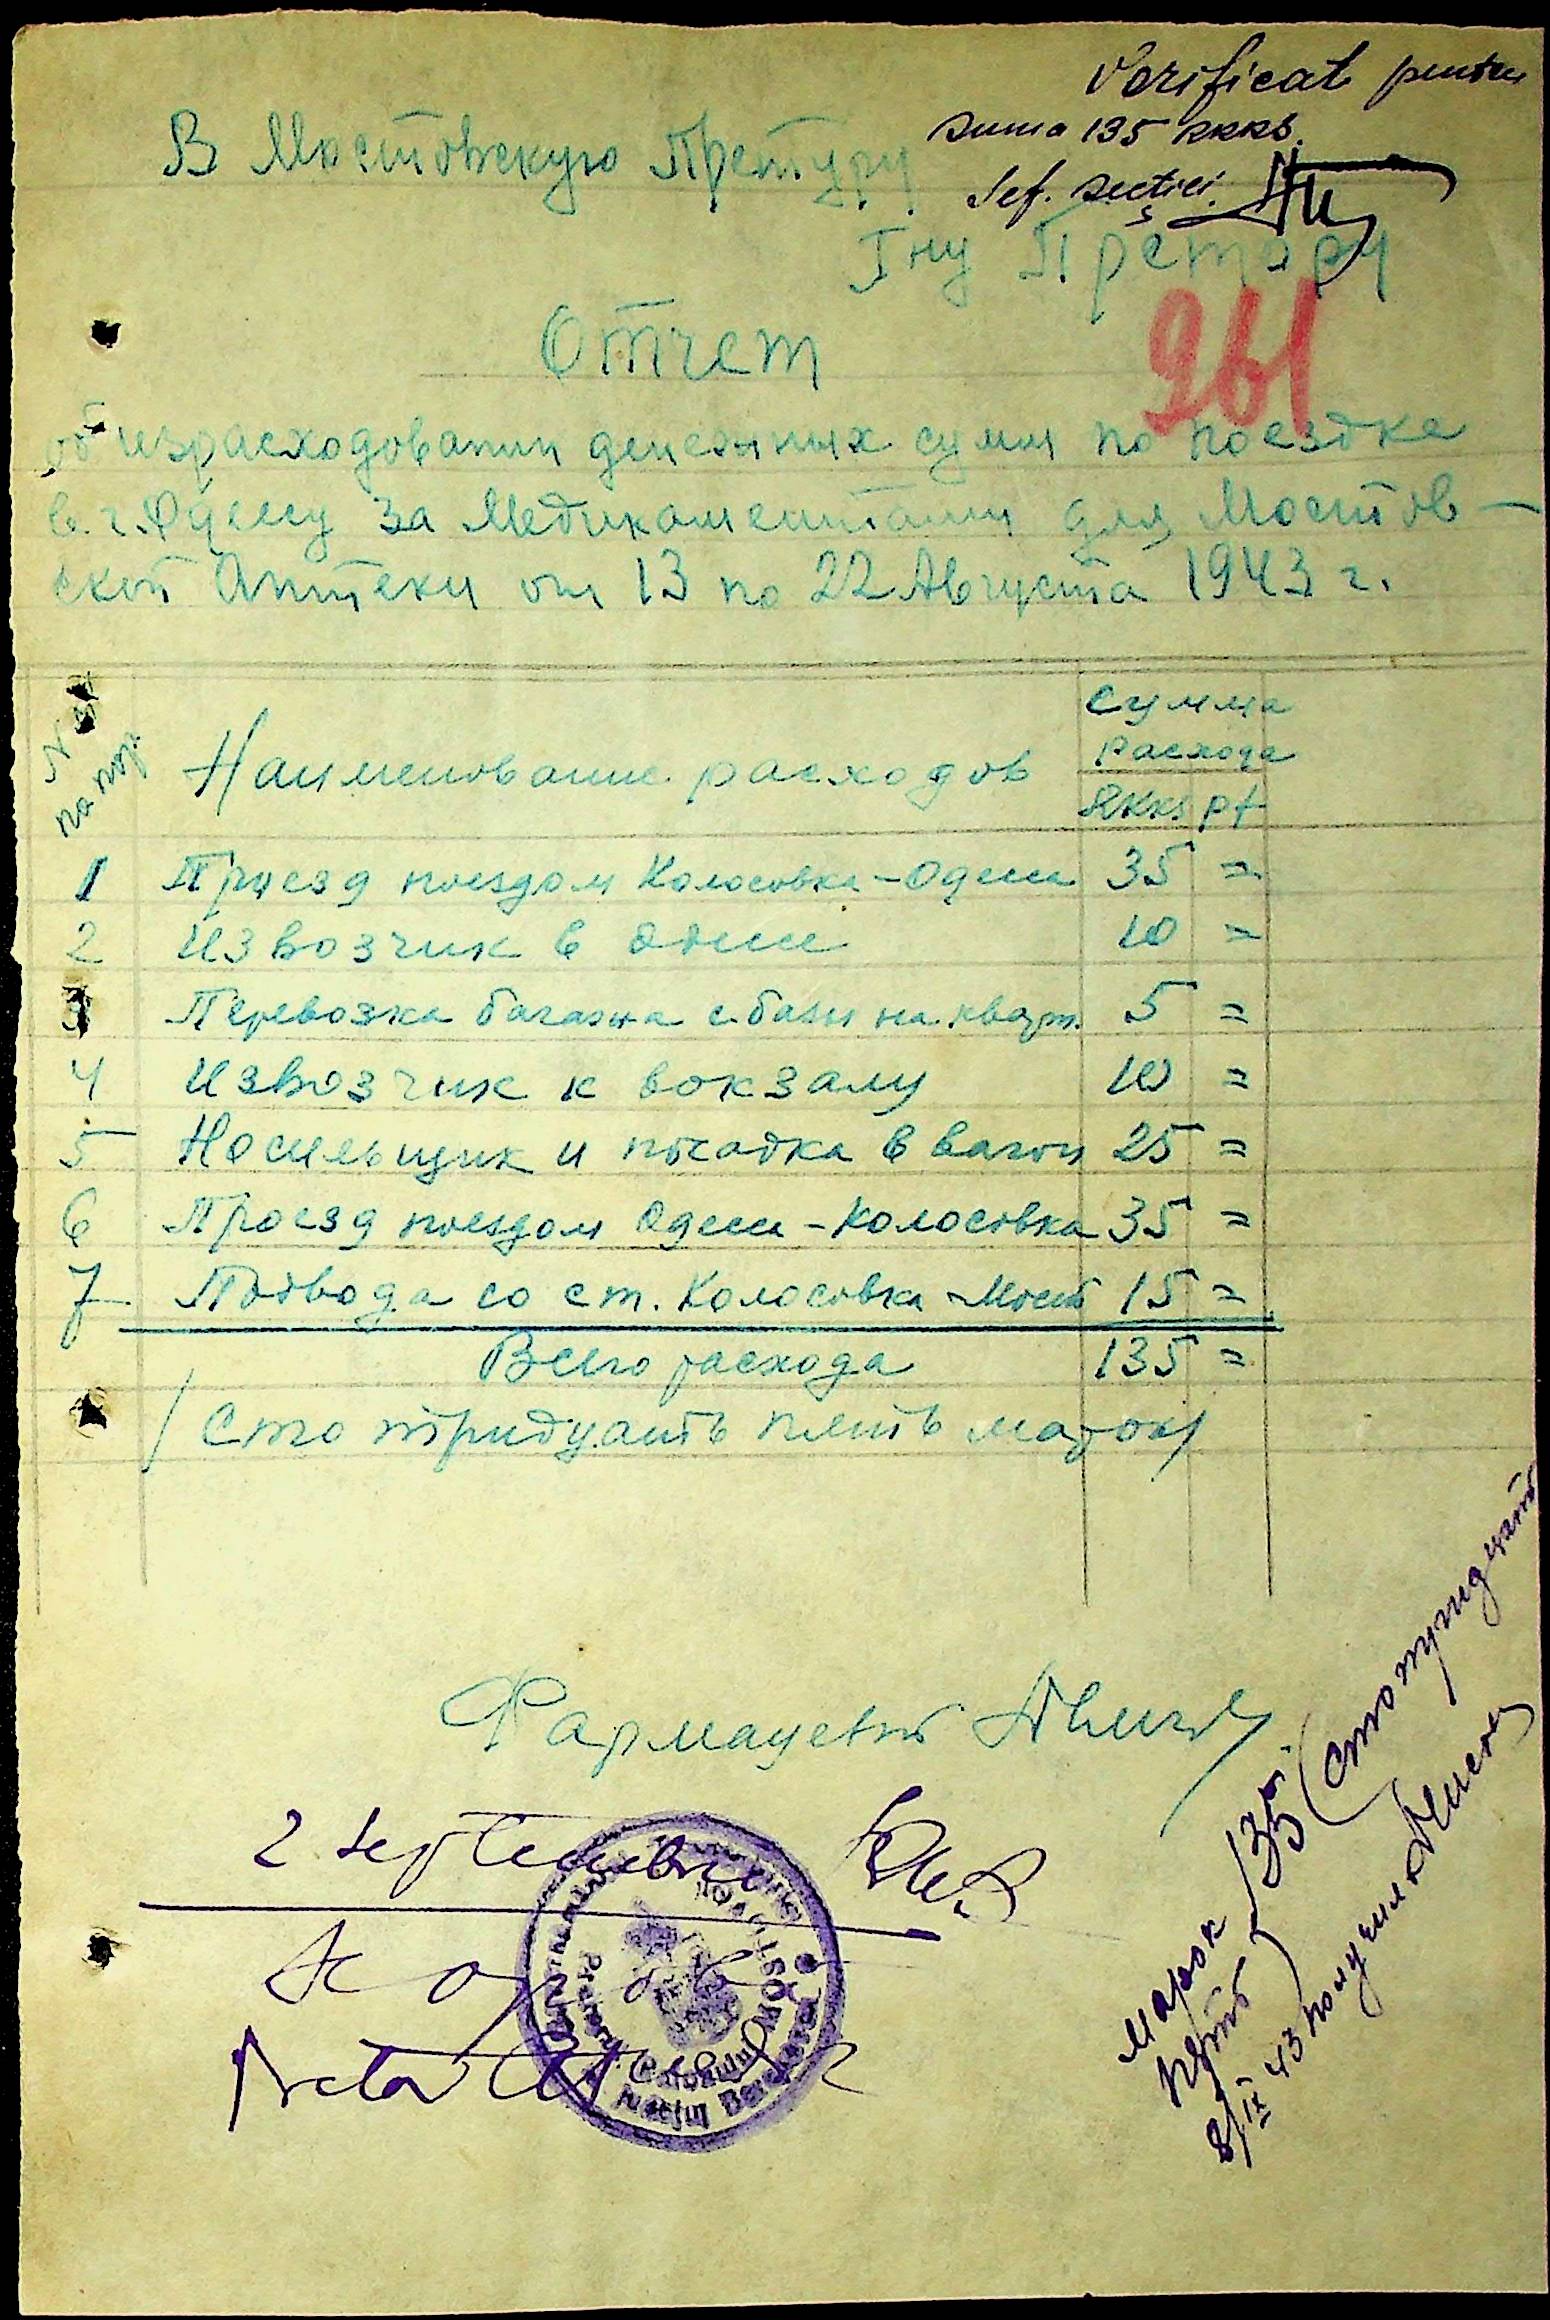 Verificat pentru
suma 135 RKKS.
Șef. secției.
В Мостовскую Претуру
Гну Претору
261
Отчет
об израсходовании денежных сумм по поездке
в г. Одессу за Медикаментами для Мостов-
ской Аптеки от 13 по 22 Августа 1943 г.
№№ по пор. Наименование расходов Сумма расхода
RKKS pf
1 Проезд поездом Колосовка-Одесса 35 =
2 Извозчик в Одессе 10 =
3 Перевозка багажа с базы на кварт. 5 =
4 Извозчик к вокзалу 10 =
5 Носильщик и посадка в вагон 25 =
6 Проезд поездом Одесса-Колосовка 35 =
7 Подвода со ст. Колосовка-Мост 15 =
Всего расхода 135 =
/Сто тридцать пять марок/
Фармацевт
2 Septembrie
марок 135 (сто тридцать
пять)
8/IX 43 получил
MOSTOVOI
Județul Berezovca